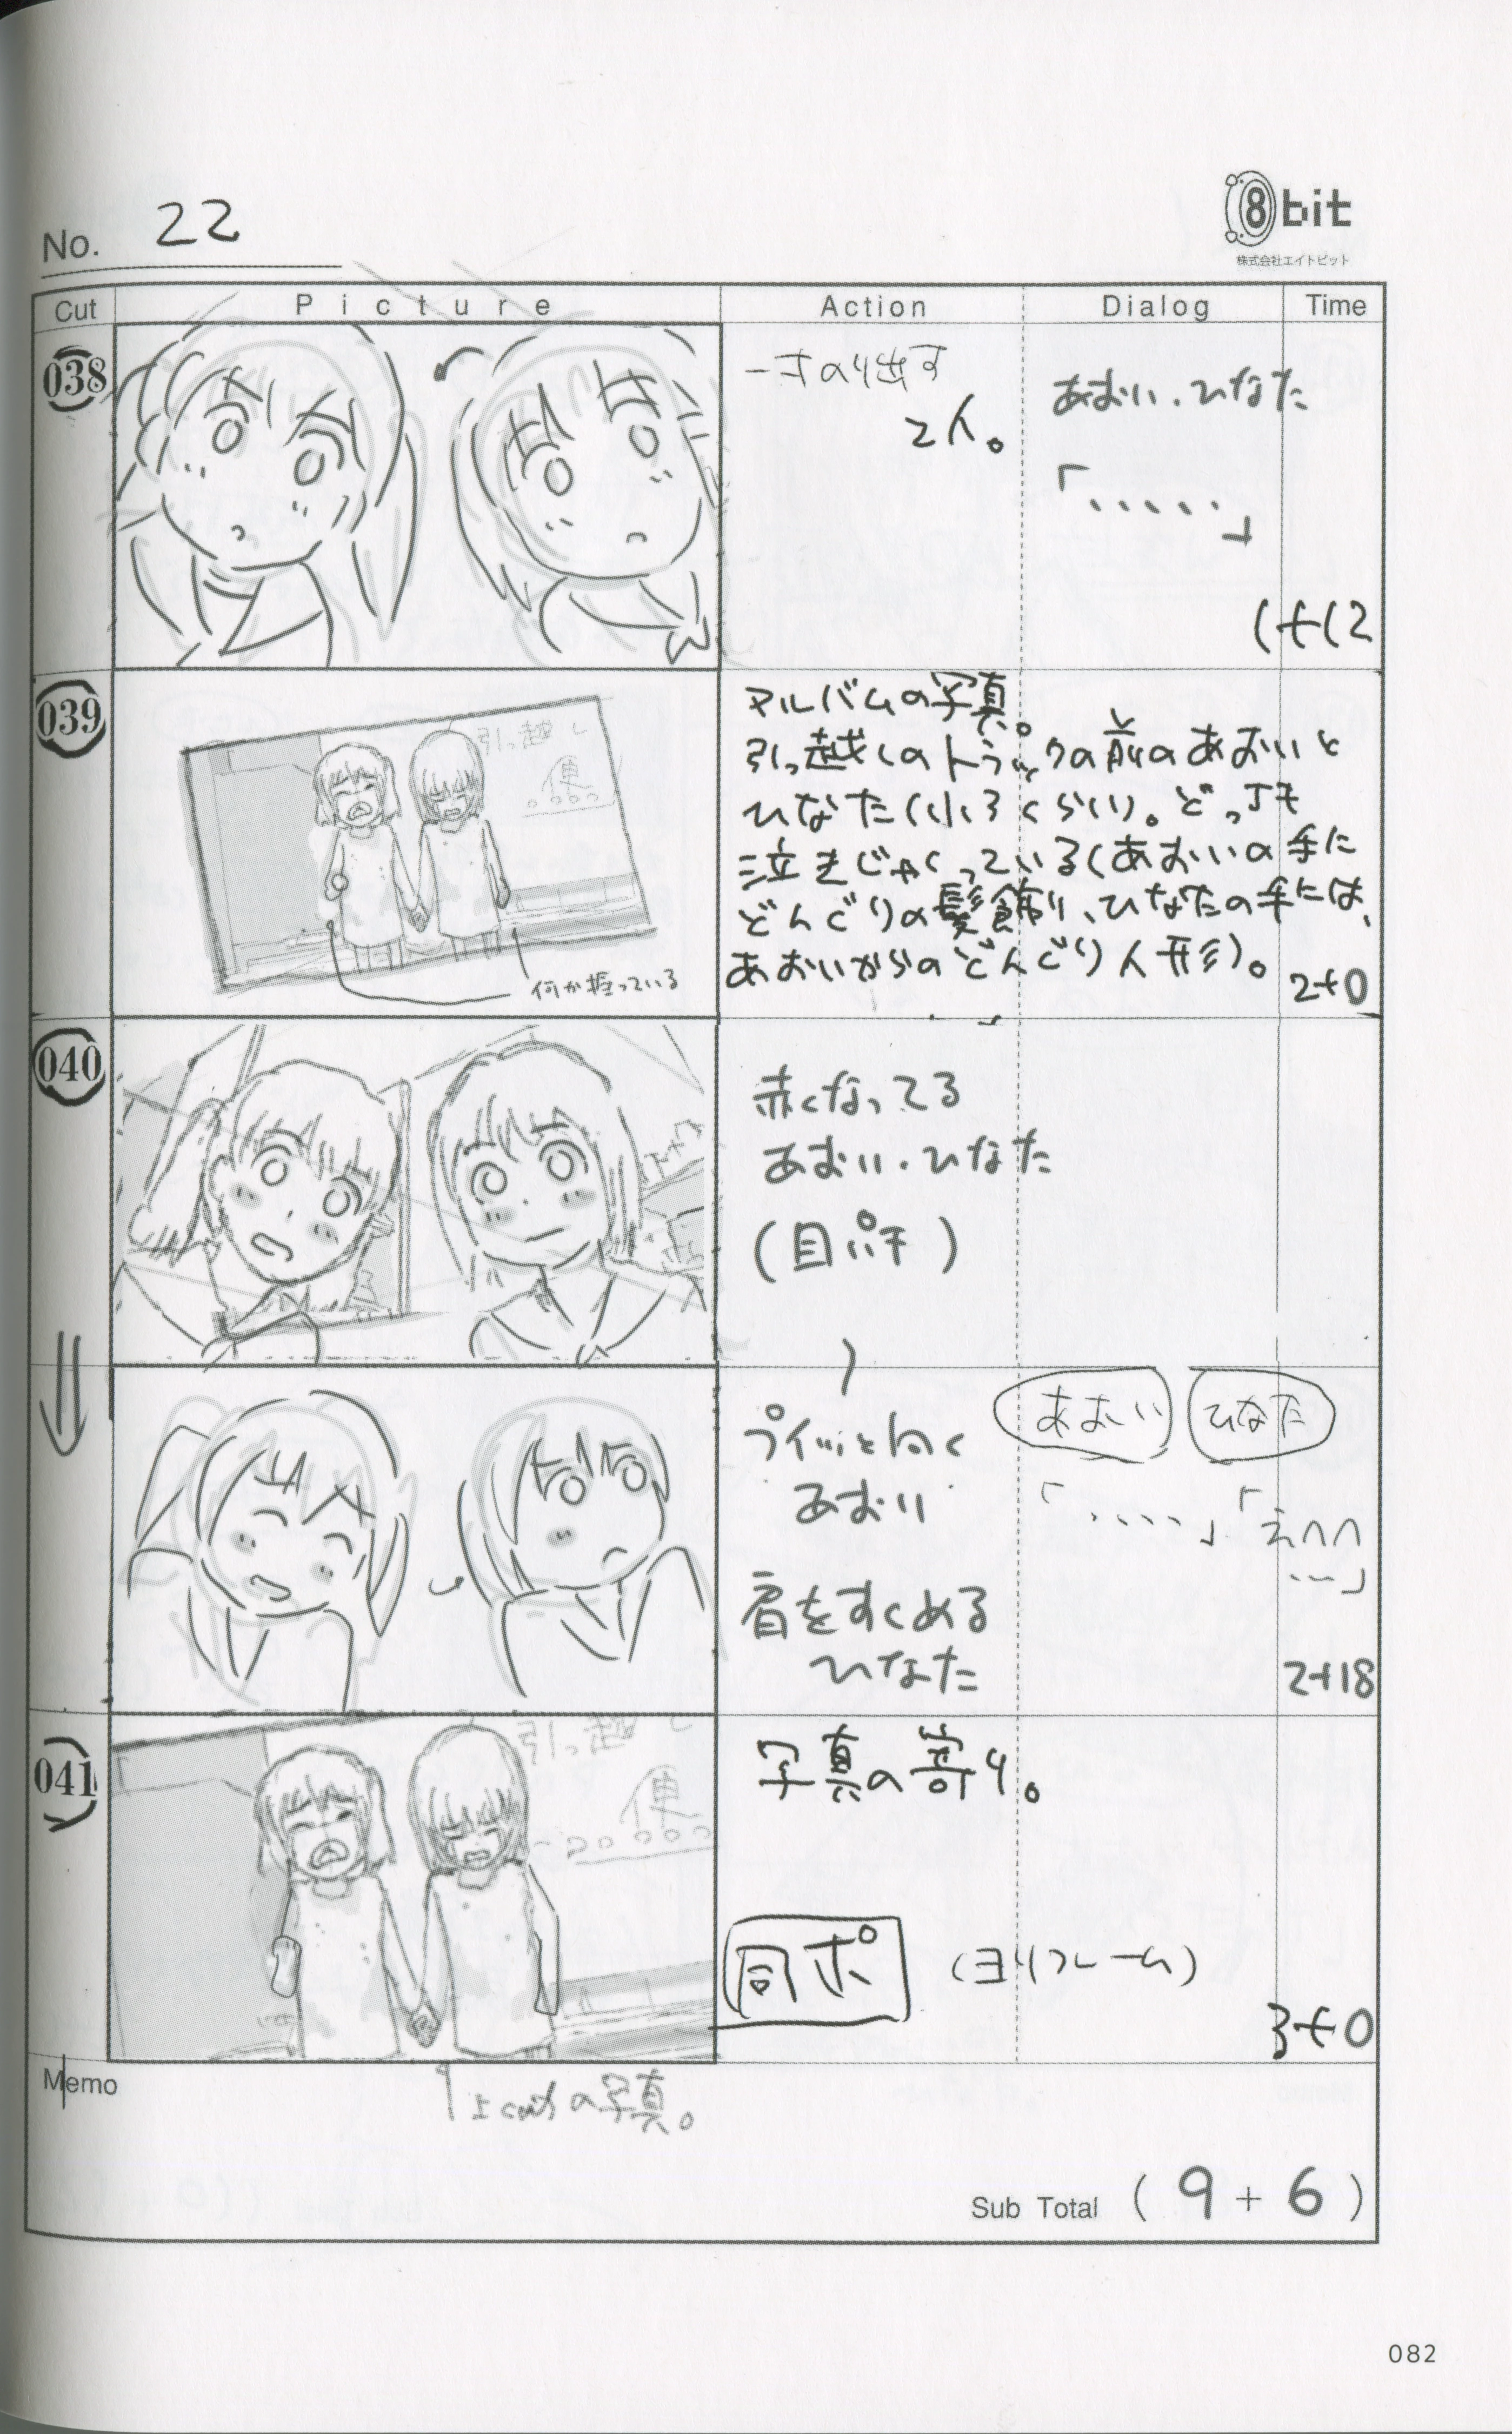 No. 22
8bit
株式会社エイトビット
Cut Picture Action Dialog Time
038
のり出す
2人。
あおい・ひなた
「・・・・・」
1+12
039
引っ越し
便
何か握っている
アルバムの写真。
引っ越しのトラックの前のあおいと
ひなた(小3くらい)。どっちも
泣きじゃくっている(あおいの手に
どんぐりの髪飾り、ひなたの手には、
あおいからのどんぐり人形)。
2+0
040
赤くなってる
あおい・ひなた
(目パチ)
プイッと向く
あおい
肩をすくめる
ひなた
あおい
「・・・・」
ひなた
「えへへ
…」
2+18
041
引っ越し
便
写真の寄り。
同ポ (ヨリフレーム)
3+0
Memo
上cutの写真。
Sub Total ( 9 + 6 )
082